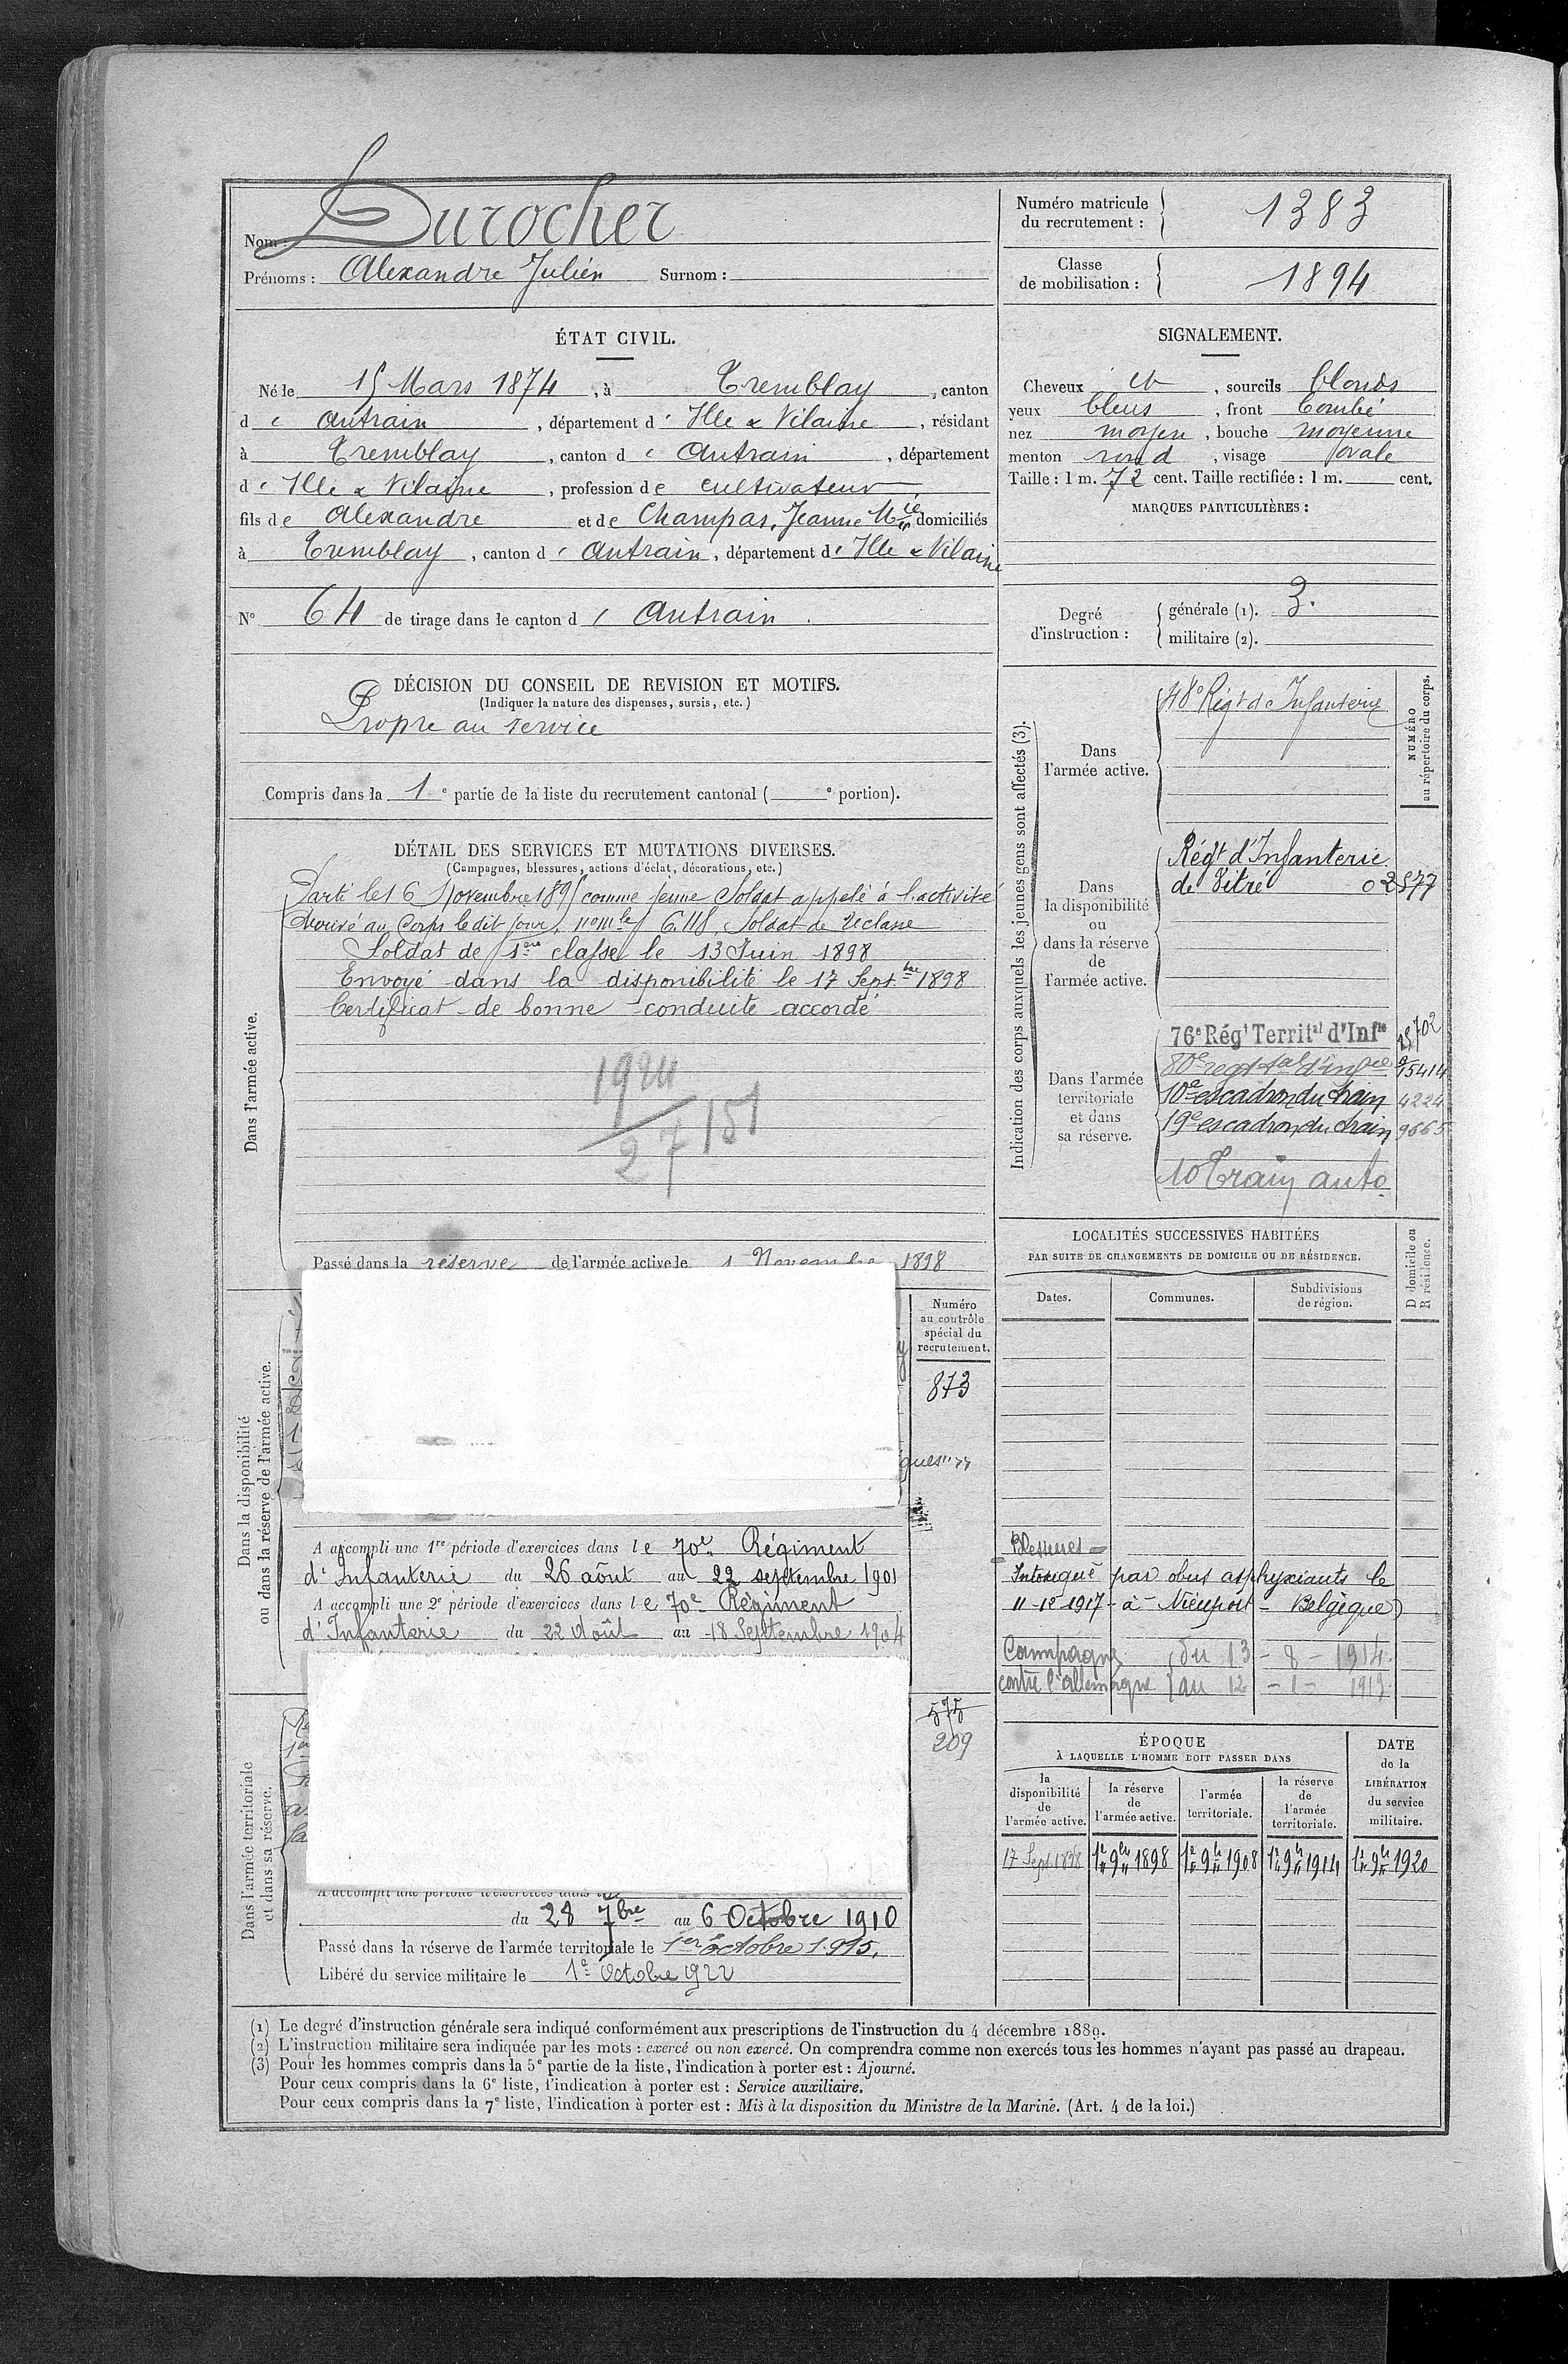 Nom : Durocher
Prénoms : Alexandre Julien Surnom :
Numéro matricule du recrutement : 1383
Classe de mobilisation : 1894
ÉTAT CIVIL.
Né le 15 Mars 1874, à Tremblay, canton
d e Antrain, département d' Ille & Vilaine, résidant
à Tremblay, canton d' Antrain, département
d' Ille & Vilaine, profession de cultivateur
fils de Alexandre et de Champas, Jeanne Mie domiciliés
à Tremblay, canton d' Antrain, département d' Ille & Vilaine
N° 64 de tirage dans le canton d' Antrain.
SIGNALEMENT.
Cheveux et, sourcils blonds
yeux bleus, front bombé
nez moyen, bouche moyenne
menton rond, visage ovale
Taille : 1 m. 72 cent. Taille rectifiée : 1 m. cent.
MARQUES PARTICULIÈRES :
Degré d'instruction : générale (1). 3.
militaire (2).
DÉCISION DU CONSEIL DE REVISION ET MOTIFS.
(Indiquer la nature des dispenses, sursis, etc.)
Propre au service
Compris dans la 1e partie de la liste du recrutement cantonal ( e portion).
DÉTAIL DES SERVICES ET MUTATIONS DIVERSES.
(Campagnes, blessures, actions d'éclat, décorations, etc.)
Dans l'armée active.
Parti le 16 Novembre 1895 comme jeune Soldat appelé à l'activité
Arrivé au Corps le dit jour, Soldat de 2e classe
Soldat de 1ère classe le 13 Juin 1898
Envoyé dans la disponibilité le 17 Sept.bre 1898
Certificat de bonne conduite accordé
1924
27 151
Passé dans la réserve de l'armée active le 1 Novembre 1898
Indication des corps auxquels les jeunes gens sont affectés (3).
NUMÉRO au répertoire du corps.
Dans l'armée active.
48e Régt d'Infanterie
Dans la disponibilité ou dans la réserve de l'armée active.
Régt d'Infanterie
de Vitré 02577
Dans l'armée territoriale et dans sa réserve.
76e Régt Territal d'Infie
80e regt tal d'infie 15414
10e escadron du train 4224
19e escadron du train 9665
10 Train auto
LOCALITÉS SUCCESSIVES HABITÉES
PAR SUITE DE CHANGEMENTS DE DOMICILE OU DE RÉSIDENCE.
D domicile ou R résidence.
Dates. Communes. Subdivisions de région.
Dans la disponibilité ou dans la réserve de l'armée active.
Numéro au contrôle spécial du recrutement.
873
A accompli une 1re période d'exercices dans le 70e Régiment
d'Infanterie du 26 août au 22 septembre 1901
A accompli une 2e période d'exercices dans le 70e Régiment
d'Infanterie du 22 Août au 18 Septembre 1904
Blessures =
Intoxiqué par obus asphyxiants le
11-12-1917 - à - Nieuport - Belgique)
Campagne du 13 - 8 - 1914
contre l'allemagne au 12 - 1 - 1919
Dans l'armée territoriale et dans sa réserve.
575
209
A accompli une période d'exercices dans
du 28 7bre au 6 Octobre 1910
Passé dans la réserve de l'armée territoriale le 1er octobre 1915.
Libéré du service militaire le 1e Octobre 1922
ÉPOQUE
À LAQUELLE L'HOMME DOIT PASSER DANS
DATE de la LIBÉRATION du service militaire.
la disponibilité de l'armée active. la réserve de l'armée active. l'armée territoriale. la réserve de l'armée territoriale.
17 Sept 1898 1er 9bre 1898 1er 9bre 1908 1er 9bre 1914 1er 9bre 1920
(1) Le degré d'instruction générale sera indiqué conformément aux prescriptions de l'instruction du 4 décembre 1889.
(2) L'instruction militaire sera indiquée par les mots : exercé ou non exercé. On comprendra comme non exercés tous les hommes n'ayant pas passé au drapeau.
(3) Pour les hommes compris dans la 5e partie de la liste, l'indication à porter est : Ajourné.
Pour ceux compris dans la 6e liste, l'indication à porter est : Service auxiliaire.
Pour ceux compris dans la 7e liste, l'indication à porter est : Mis à la disposition du Ministre de la Marine. (Art. 4 de la loi.)